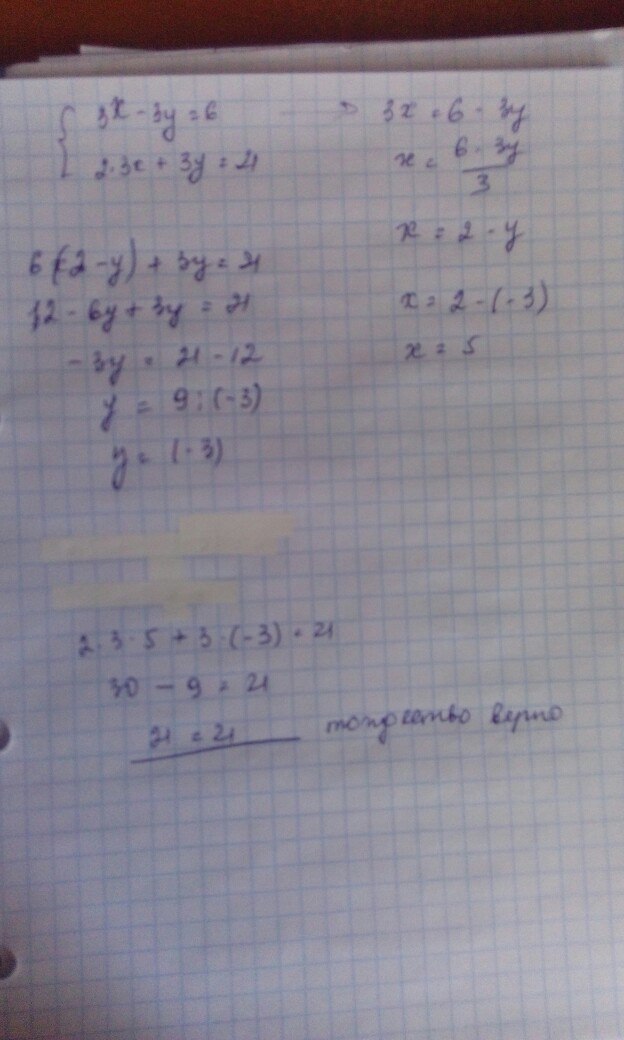 3x - 3y = 6 → 3x = 6 - 3y
2·3x + 3y = 21
x = 6 - 3y / 3
x = 2 - y
6(2 - y) + 3y = 21
12 - 6y + 3y = 21
x = 2 - (-3)
-3y = 21 - 12
x = 5
y = 9 : (-3)
y = (-3)
2·3·5 + 3·(-3) = 21
30 - 9 = 21
21 = 21 тождество верно